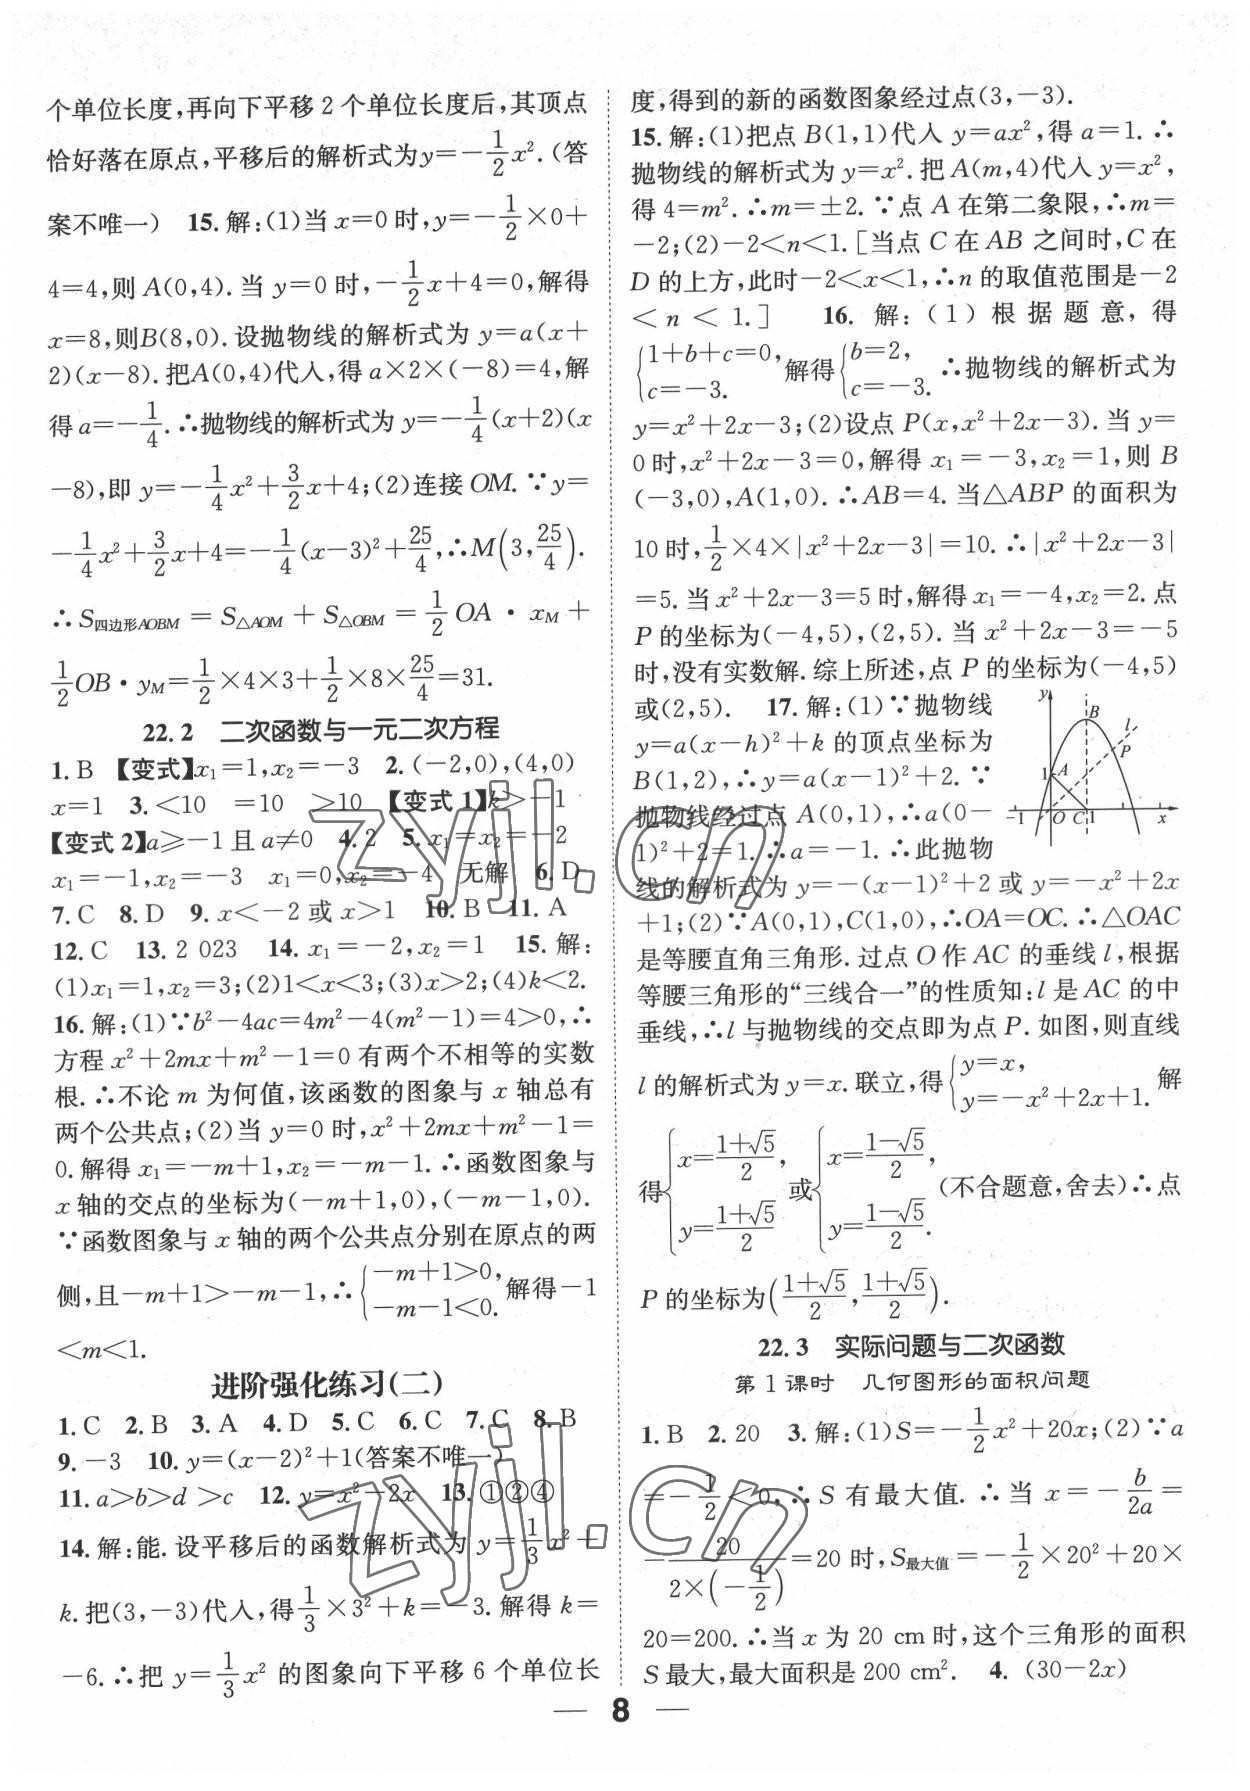 个单位长度,再向下平移 2 个单位长度后,其顶点
恰好落在原点,平移后的解析式为y=-\frac{1}{2}x².(答
案不唯一)  15.解:(1)当 x=0 时,y=-\frac{1}{2}×0+
4=4,则 A(0,4).当 y=0 时,-\frac{1}{2}x+4=0,解得
x=8,则B(8,0).设抛物线的解析式为 y=a(x+
2)(x-8).把A(0,4)代入,得 a×2×(-8)=4,解
得 a=-\frac{1}{4}.∴抛物线的解析式为 y=-\frac{1}{4}(x+2)(x
-8),即 y=-\frac{1}{4}x²+\frac{3}{2}x+4;(2)连接 OM.∵y=
-\frac{1}{4}x²+\frac{3}{2}x+4=-\frac{1}{4}(x-3)²+\frac{25}{4},∴M(3,\frac{25}{4}).
∴S四边形AOBM=S△AOM+S△OBM=\frac{1}{2}OA·x_M+
\frac{1}{2}OB·y_M=\frac{1}{2}×4×3+\frac{1}{2}×8×\frac{25}{4}=31.
22.2  二次函数与一元二次方程
1.B 【变式】x₁=1,x₂=-3  2.(-2,0),(4,0)
x=1  3.<10  =10  >10 【变式 1】k>-1
【变式 2】a≥-1 且 a≠0  4.2  5.x₁=x₂=-2
x₁=-1,x₂=-3  x₁=0,x₂=-4  无解  6.D
7.C  8.D  9.x<-2 或 x>1  10.B  11.A
12.C  13.2 023  14.x₁=-2,x₂=1  15.解:
(1)x₁=1,x₂=3;(2)1<x<3;(3)x>2;(4)k<2.
16.解:(1)∵b²-4ac=4m²-4(m²-1)=4>0,∴
方程 x²+2mx+m²-1=0 有两个不相等的实数
根.∴不论 m 为何值,该函数的图象与 x 轴总有
两个公共点;(2)当 y=0 时,x²+2mx+m²-1=
0.解得 x₁=-m+1,x₂=-m-1.∴函数图象与
x 轴的交点的坐标为(-m+1,0),(-m-1,0).
∵函数图象与 x 轴的两个公共点分别在原点的两
侧,且-m+1>-m-1,∴{-m+1>0, -m-1<0. 解得-1
<m<1.
进阶强化练习(二)
1.C  2.B  3.A  4.D  5.C  6.C  7.C  8.B
9.-3  10.y=(x-2)²+1(答案不唯一)
11.a>b>d >c  12.y=x²-2x  13.①②④
14.解:能.设平移后的函数解析式为 y=\frac{1}{3}x²+
k.把(3,-3)代入,得\frac{1}{3}×3²+k=-3.解得 k=
-6.∴把 y=\frac{1}{3}x² 的图象向下平移 6 个单位长
度,得到的新的函数图象经过点(3,-3).
15.解:(1)把点 B(1,1)代入 y=ax²,得 a=1.∴
抛物线的解析式为 y=x².把 A(m,4)代入 y=x²,
得 4=m².∴m=±2.∵点 A 在第二象限,∴m=
-2;(2)-2<n<1.[当点 C 在 AB 之间时,C 在
D 的上方,此时-2<x<1,∴n 的取值范围是-2
<n<1.]  16.解:(1)根据题意,得
{1+b+c=0, c=-3. 解得{b=2, c=-3. ∴抛物线的解析式为
y=x²+2x-3;(2)设点 P(x,x²+2x-3).当 y=
0 时,x²+2x-3=0,解得 x₁=-3,x₂=1,则 B
(-3,0),A(1,0).∴AB=4.当△ABP 的面积为
10 时,\frac{1}{2}×4×|x²+2x-3|=10.∴|x²+2x-3|
=5.当 x²+2x-3=5 时,解得 x₁=-4,x₂=2.点
P 的坐标为(-4,5),(2,5).当 x²+2x-3=-5
时,没有实数解.综上所述,点 P 的坐标为(-4,5)
或(2,5).  17.解:(1)∵抛物线
y=a(x-h)²+k 的顶点坐标为
B(1,2),∴y=a(x-1)²+2.∵
抛物线经过点 A(0,1),∴a(0-
1)²+2=1.∴a=-1.∴此抛物
y
B
l
P
1
A
-1
O
C
1
x
线的解析式为 y=-(x-1)²+2 或 y=-x²+2x
+1;(2)∵A(0,1),C(1,0),∴OA=OC.∴△OAC
是等腰直角三角形.过点 O 作 AC 的垂线 l,根据
等腰三角形的“三线合一”的性质知:l 是 AC 的中
垂线,∴l 与抛物线的交点即为点 P.如图,则直线
l 的解析式为 y=x.联立,得{y=x, y=-x²+2x+1. 解
得{x=\frac{1+√5}{2}, y=\frac{1+√5}{2} 或{x=\frac{1-√5}{2}, y=\frac{1-√5}{2}. (不合题意,舍去)∴点
P 的坐标为(\frac{1+√5}{2},\frac{1+√5}{2}).
22.3  实际问题与二次函数
第 1 课时  几何图形的面积问题
1.B  2.20  3.解:(1)S=-\frac{1}{2}x²+20x;(2)∵a
=-\frac{1}{2}<0,∴S 有最大值.∴当 x=-\frac{b}{2a}=
-\frac{20}{2×(-\frac{1}{2})}=20 时,S最大值=-\frac{1}{2}×20²+20×
20=200.∴当 x 为 20 cm 时,这个三角形的面积
S 最大,最大面积是 200 cm².  4.(30-2x)
— 8 —
zyjl.cn
zyjl.cn